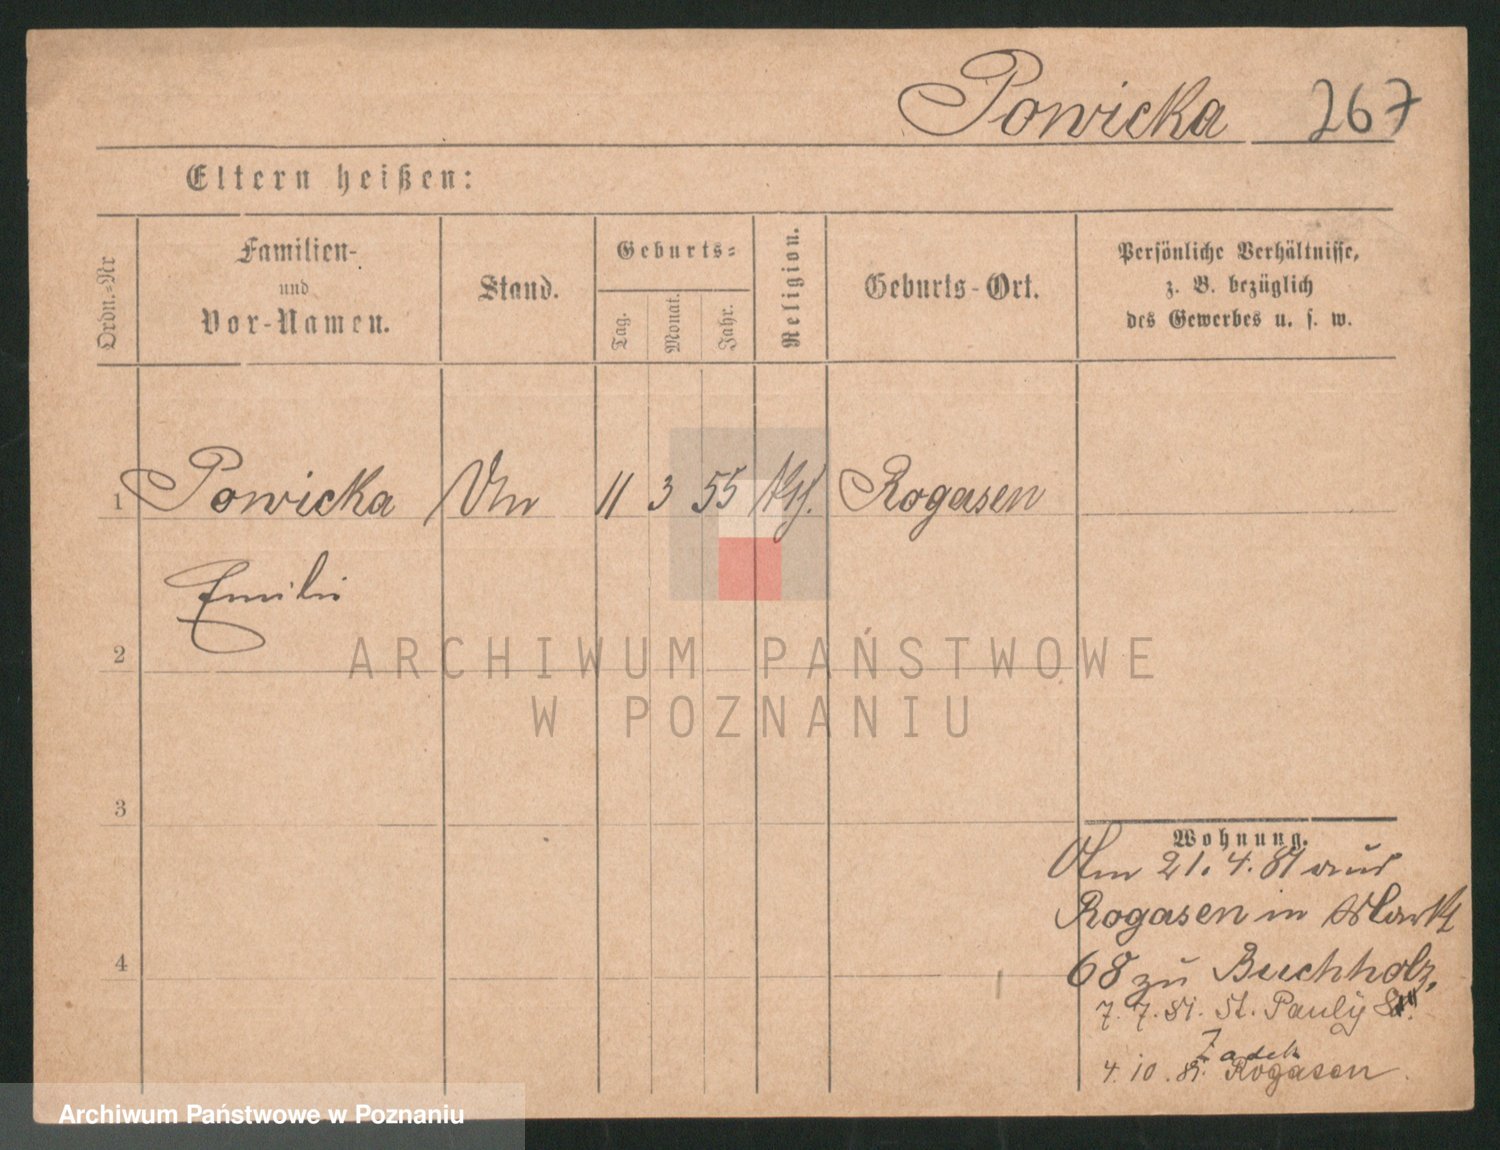 Powicka 267
Eltern heißen:
Ordn.-Nr
Familien-
und
Vor-Namen.
Stand.
Geburts-
Tag.
Monat.
Jahr.
Religion.
Geburts-Ort.
Persönliche Verhältnisse,
z. B. bezüglich
des Gewerbes u. s. w.
1 Powicka 11 3 55 Kth. Rogasen
Emilie
2
3
4
Wohnung.
Am 21.4.81 aus
Rogasen in Markt
68 zu Buchholz.
7.7.81. St. Pauly
Zadek
4.10.81. Rogasen.
ARCHIWUM PAŃSTWOWE
W POZNANIU
Archiwum Państwowe w Poznaniu